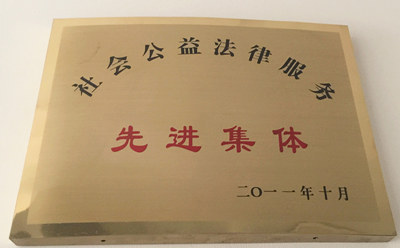 社会公益法律服务
先进集体
二〇一一年十月